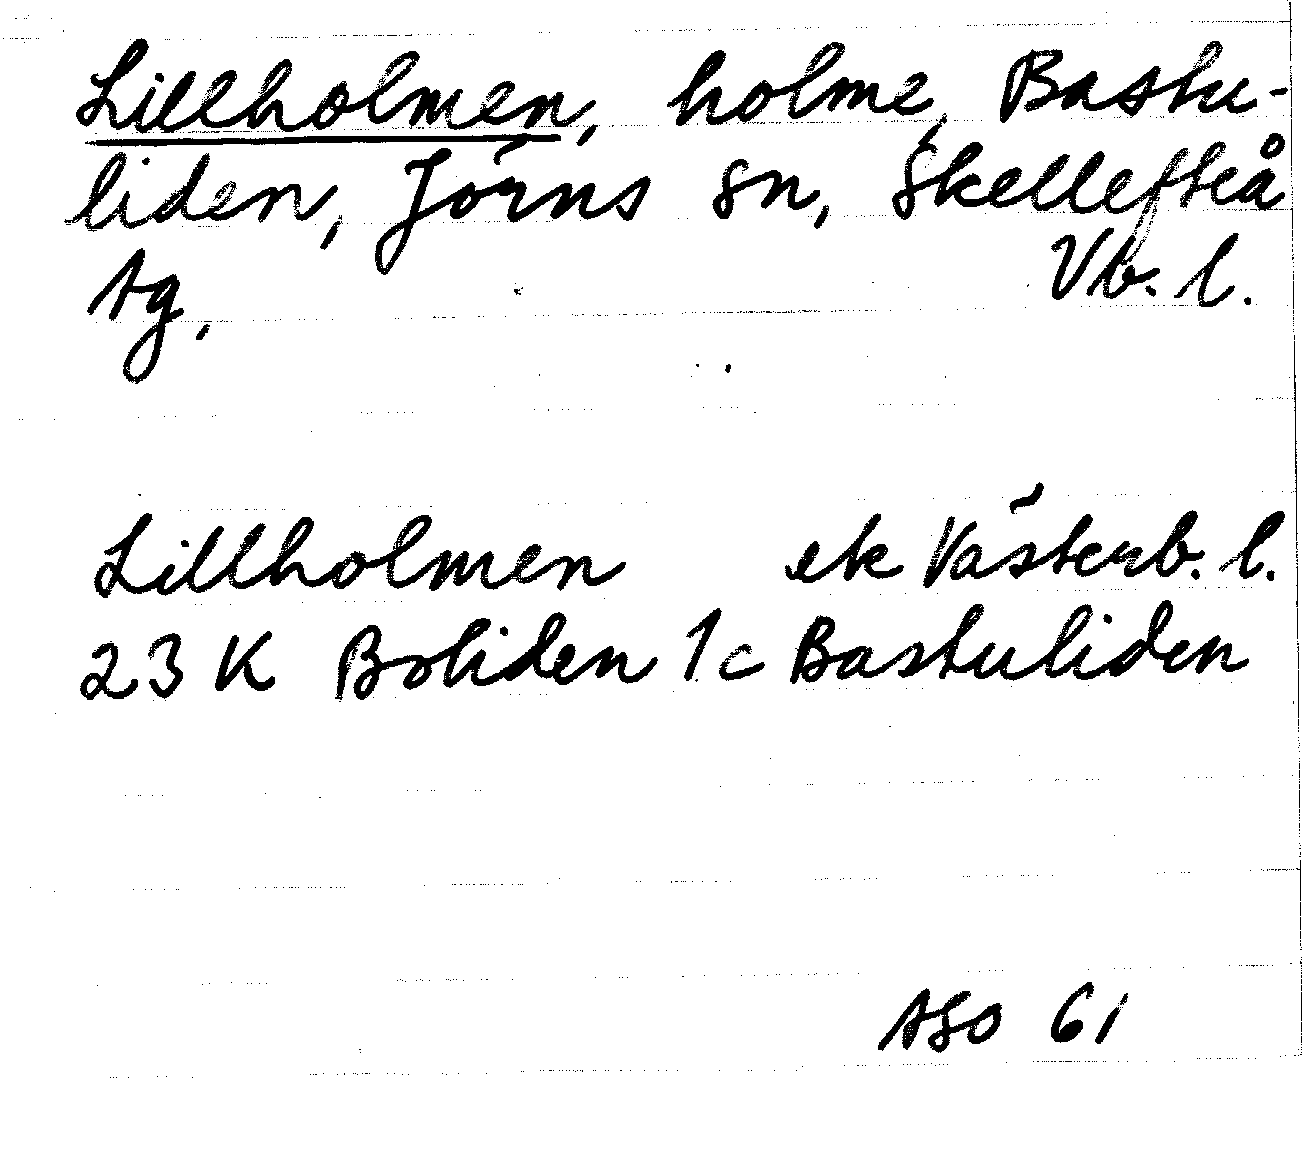 Lillholmen, holme, Bastu-
liden, Jörns sn, Skellefteå
tg, Vb. l.
Lillholmen ek Västerb. l.
23 K Boliden 1c Bastuliden
ASO 61